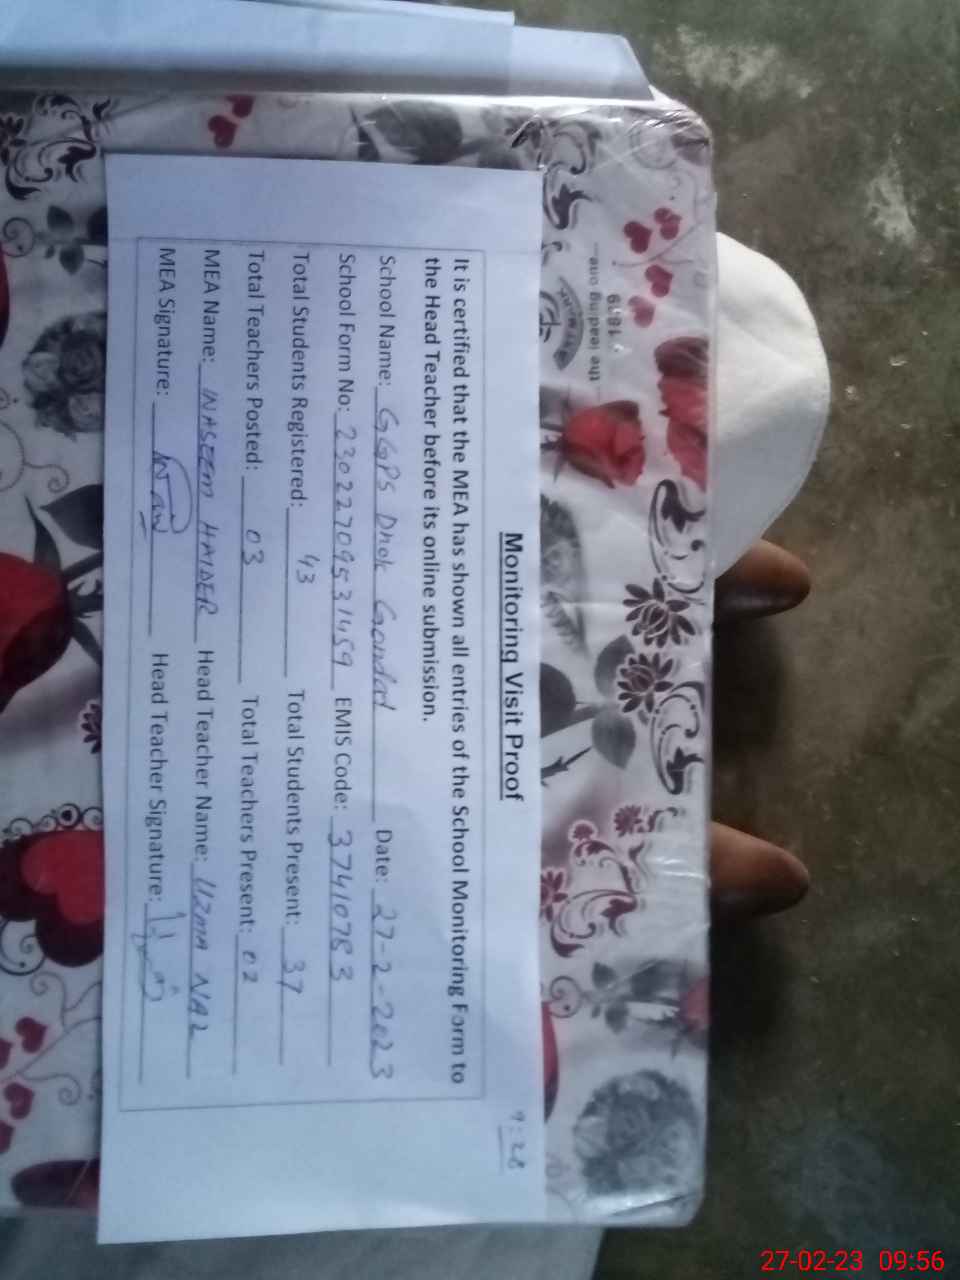 Monitoring Visit Proof
9:28
It is certified that the MEA has shown all entries of the School Monitoring Form to
the Head Teacher before its online submission.
School Name: GGPS Dhok Gondal Date: 27-2-2023
School Form No: 23022709531459 EMIS Code: 37410783
Total Students Registered: 43 Total Students Present: 37
Total Teachers Posted: 03 Total Teachers Present: 02
MEA Name: WASEEM HAIDER Head Teacher Name: UZMA NAZ
MEA Signature: Head Teacher Signature:
the leading one
27-02-23 09:56